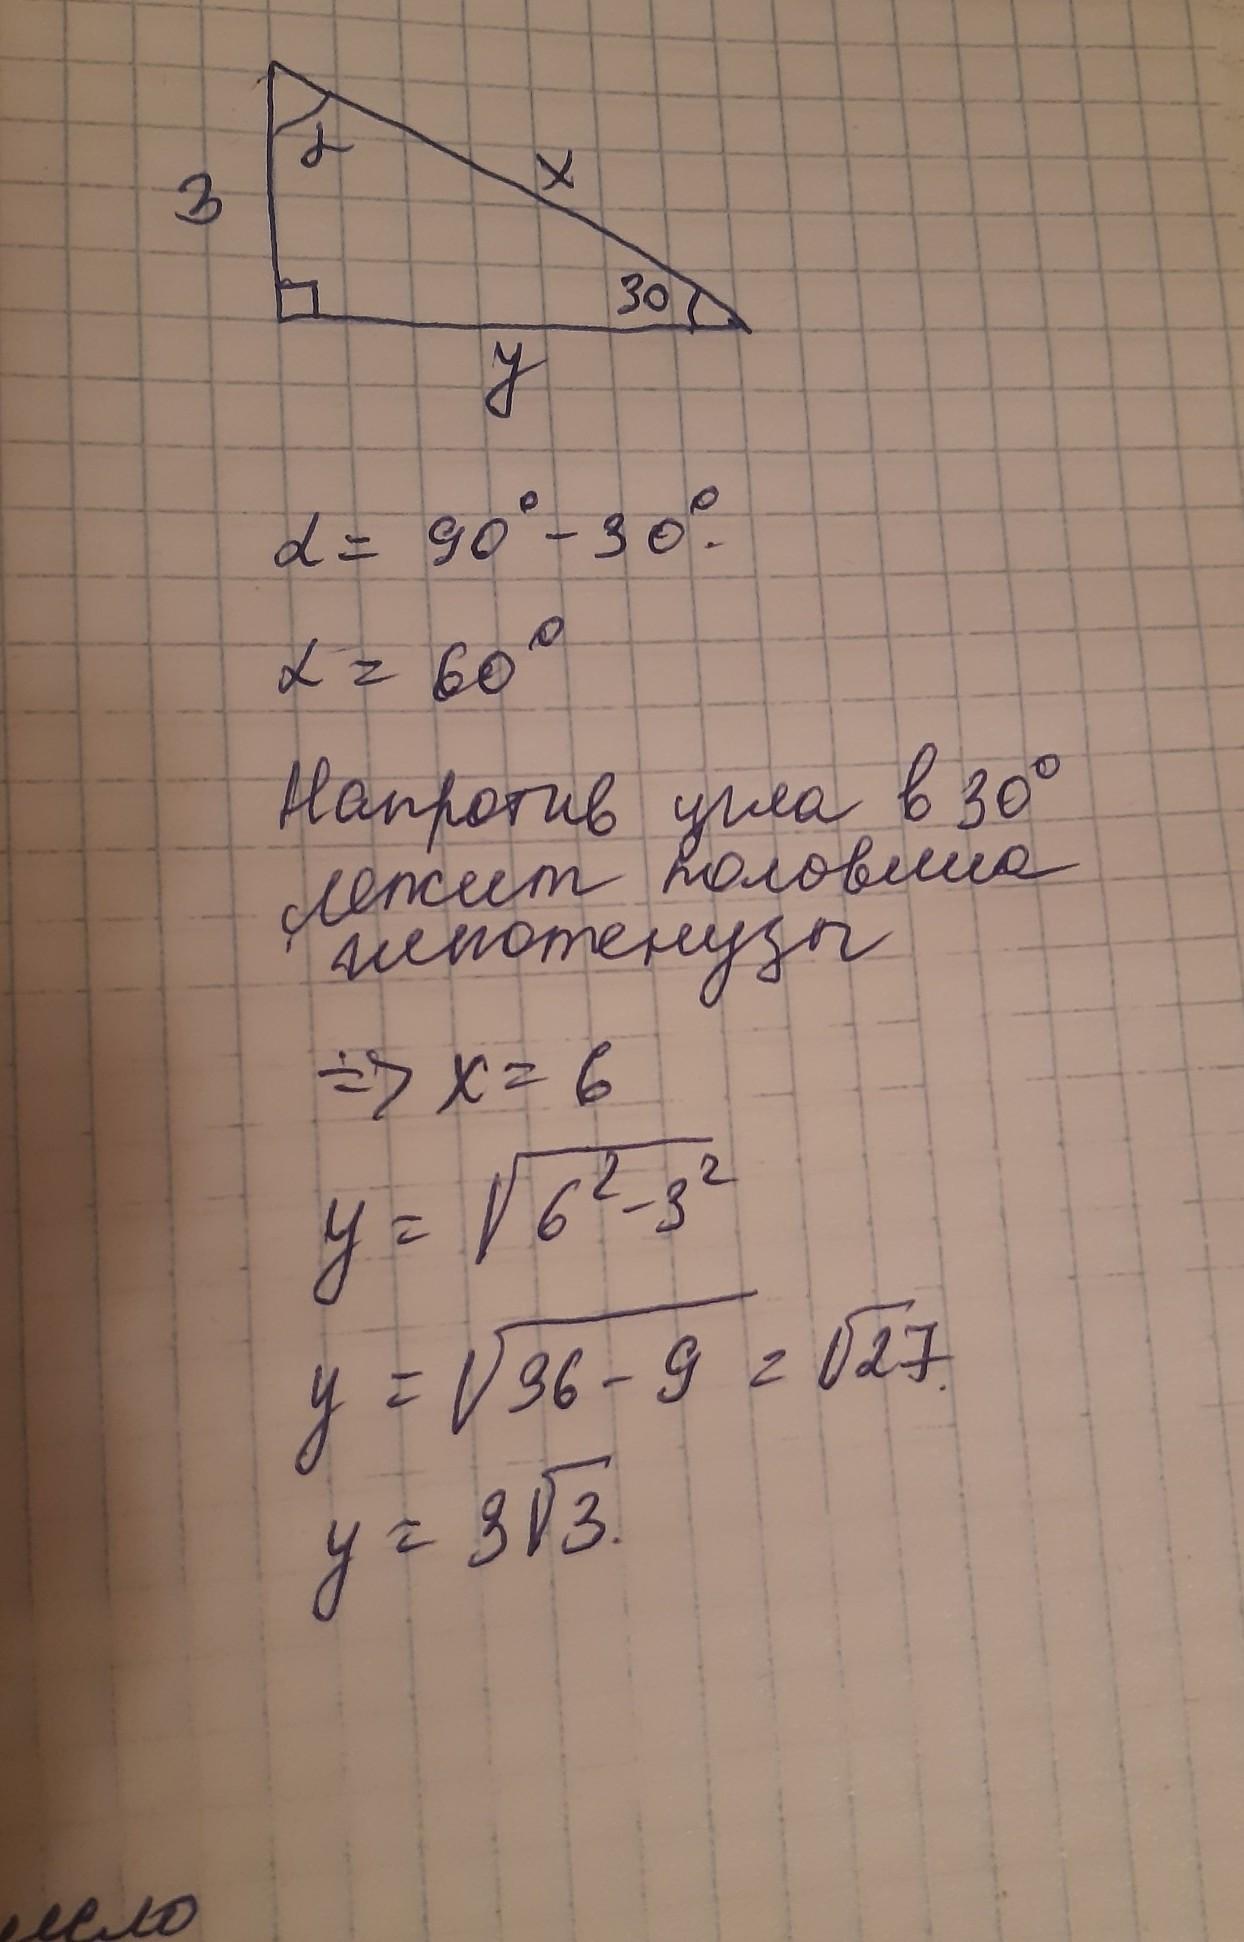 α
x
3
30
y
α = 90° - 30°.
α = 60°
Напротив угла в 30°
лежит половина
гипотенузы
=> x = 6
y = √6² - 3²
y = √36 - 9 = √27.
y = 3√3.